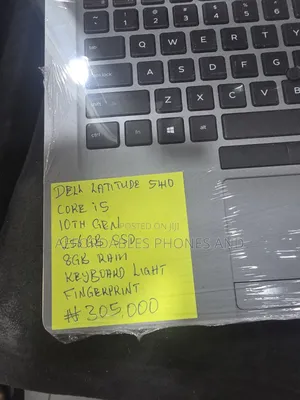 Q W E R T Y U
A S D F G H J
Z X C V B N
DELL LATITUDE 5410
CORE i5
10TH GEN
POSTED ON jiji
256GB SSD
AFFORDABLES PHONES AND
8GB RAM
KEYBOARD LIGHT
FINGERPRINT
₦305,000